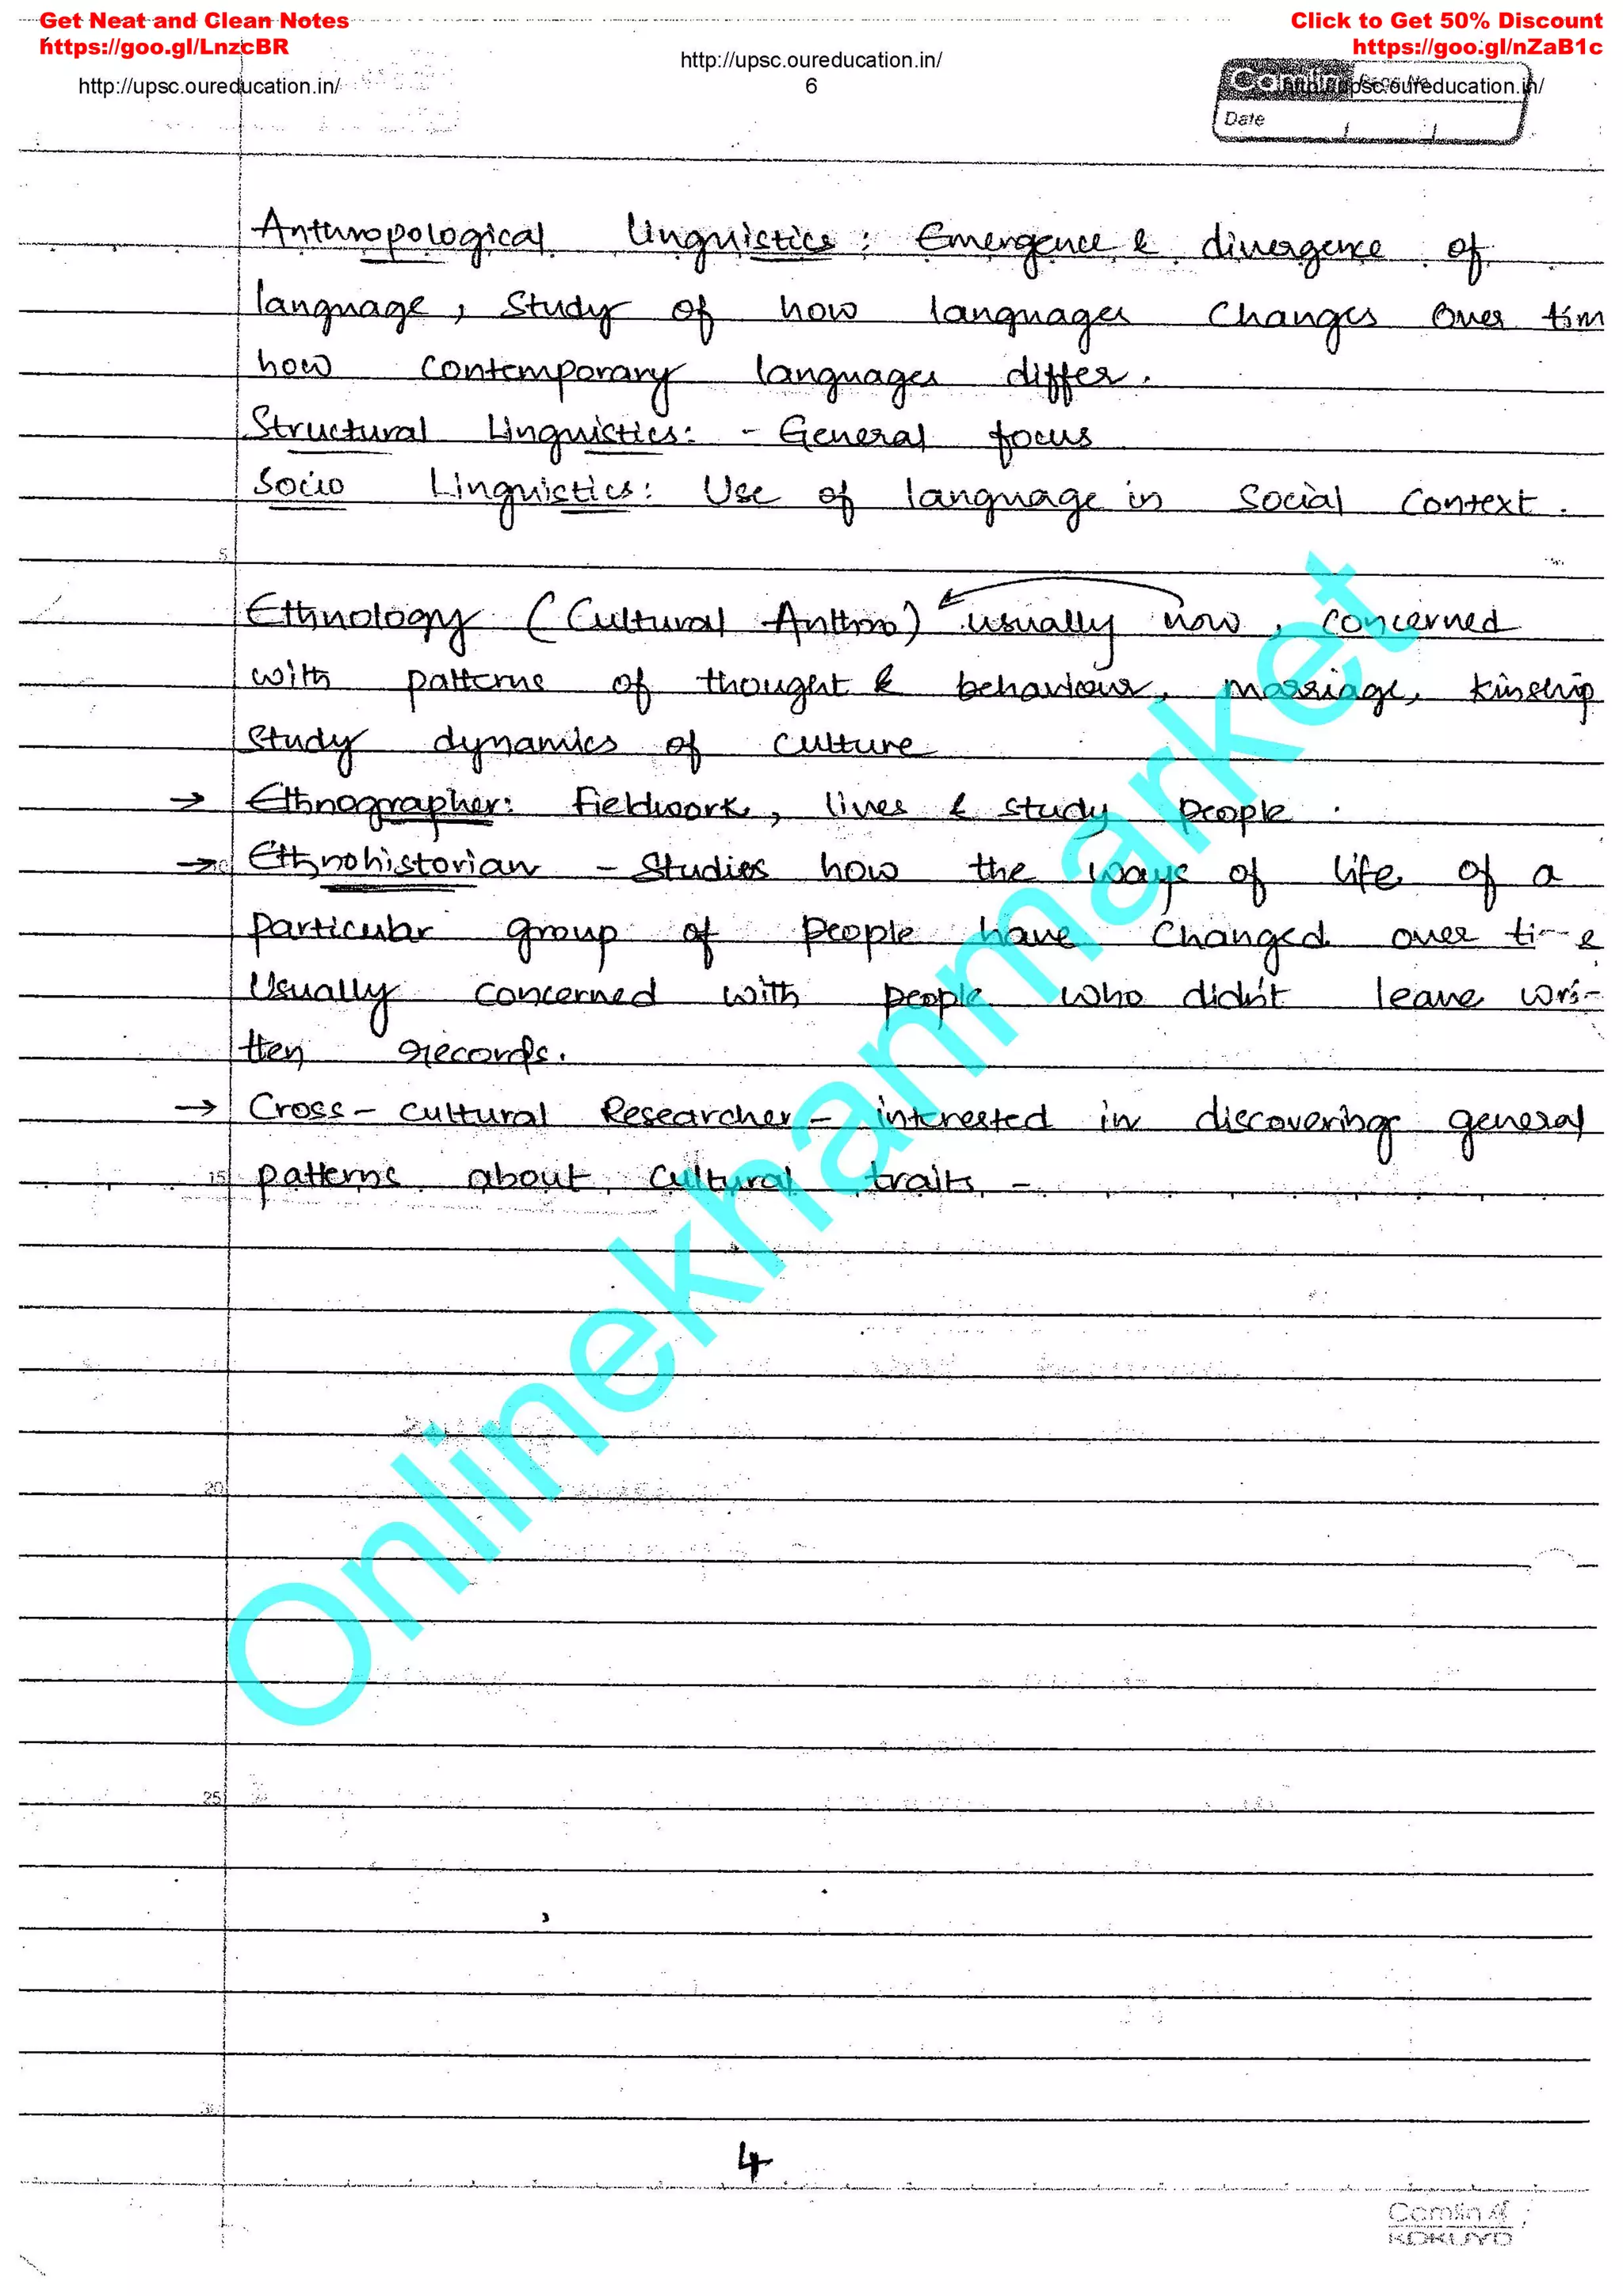 Get Neat and Clean Notes
https://goo.gl/LnzcBR
Click to Get 50% Discount
https://goo.gl/nZaB1c
http://upsc.oureducation.in/
http://upsc.oureducation.in/
6
http://upsc.oureducation.in/
Camlin Page No.
Date / /
Anthropological Linguistics : Emergence & divergence of
language, Study of how languages Changes Over tim
how Contemporary languages differ.
Structural Linguistics: - General focus
Socio Linguistics: Use of language in Social Context.
5
Ethnology (Cultural Anthro) usually now, concerned
with patterns of thought & behaviour, marriage, kinship
Study dynamics of culture
→ Ethnographer: Fieldwork, lives & study people.
→ Ethnohistorian - Studies how the ways of life of a
particular group of people have Changed over time
Usually concerned with people who didn't leave wri-
tten records.
→ Cross-cultural Researcher - interested in discovering general
15 patterns about cultural traits -
20
25
4
Camlin
KOKUYO
Onlinekhanmarket